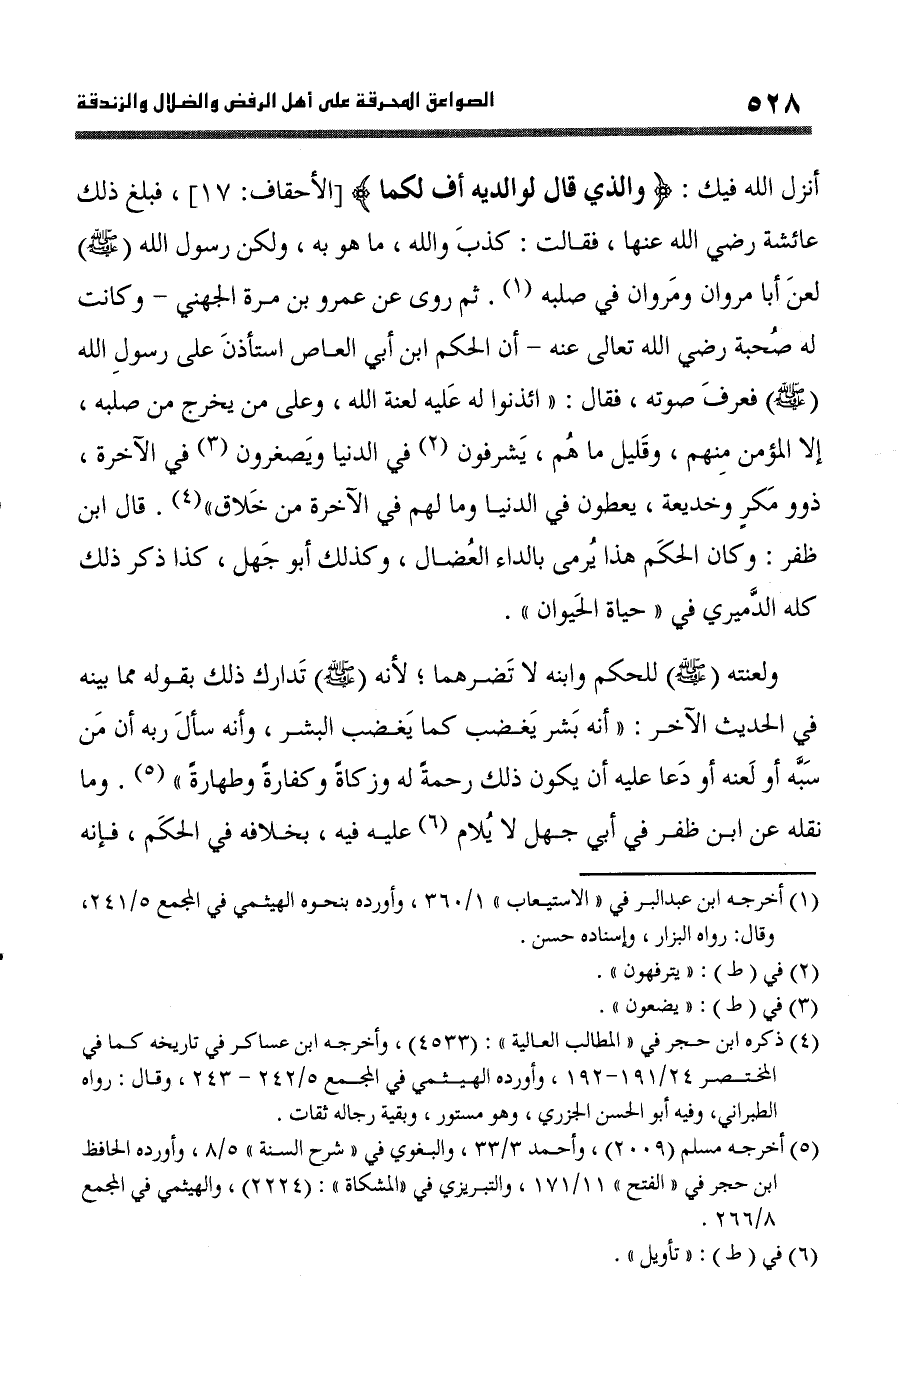 ٥٢٨ الصواعق المحرقة على أهل الرفض والضلال والزندقة
أنزل الله فيك : ﴿ والذي قال لوالديه أف لكما ﴾ [الأحقاف: ١٧] ، فبلغ ذلك
عائشة رضي الله عنها ، فقالت : كذبَ والله ، ما هو به ، ولكن رسول الله (ﷺ)
لعنَ أبا مروان ومَروان في صلبه (١) . ثم روى عن عمرو بن مرة الجهني – وكانت
له صُحبة رضي الله تعالى عنه – أن الحكم ابن أبي العاص استأذنَ على رسولِ الله
(ﷺ) فعرفَ صوته ، فقال : « ائذنوا له عَليه لعنة الله ، وعلى من يخرج من صلبه ،
إلا المؤمن مِنهم ، وقَليل ما هُم ، يَشرفون (٢) في الدنيا ويَصغرون (٣) في الآخرة ،
ذوو مَكرٍ وخديعة ، يعطون في الدنيا وما لهم في الآخرة من خَلاق»(٤) . قال ابن
ظفر : وكان الحكَم هذا يُرمى بالداء العُضال ، وكذلك أبو جَهل ، كذا ذكر ذلك
كله الدَّميري في « حياة الحَيوان » .
ولعنته (ﷺ) للحكم وابنه لا تَضرهما ؛ لأنه (ﷺ) تَدارك ذلك بقوله مما بينه
في الحديث الآخر : « أنه بَشر يَغضب كما يَغضب البشر ، وأنه سألَ ربه أن مَن
سَبَّه أو لَعنه أو دَعا عليه أن يكون ذلك رحمةً له وزكاةً وكفارةً وطهارةً » (٥) . وما
نقله عن ابن ظفر في أبي جهل لا يُلام (٦) عليه فيه ، بخلافه في الحكَم ، فإنه
(١) أخرجه ابن عبدالبر في « الاستيعاب » ٣٦٠/١ ، وأورده بنحوه الهيثمي في المجمع ٢٤١/٥،
وقال: رواه البزار ، وإسناده حسن .
(٢) في ( ط ) : « يترفهون » .
(٣) في ( ط ) : « يضعون » .
(٤) ذكره ابن حجر في « المطالب العالية » : (٤٥٣٣) ، وأخرجه ابن عساكر في تاريخه كما في
المختصر ١٩١/٢٤–١٩٢ ، وأورده الهيثمي في المجمع ٢٤٢/٥ – ٢٤٣ ، وقال : رواه
الطبراني، وفيه أبو الحسن الجزري ، وهو مستور ، وبقية رجاله ثقات .
(٥) أخرجه مسلم (٢٠٠٩) ، وأحمد ٣٣/٣ ، والبغوي في « شرح السنة » ٨/٥ ، وأورده الحافظ
ابن حجر في « الفتح » ١٧١/١١ ، والتبريزي في «المشكاة » : (٢٢٢٤) ، والهيثمي في المجمع
٢٦٦/٨ .
(٦) في ( ط ) : « تأويل » .